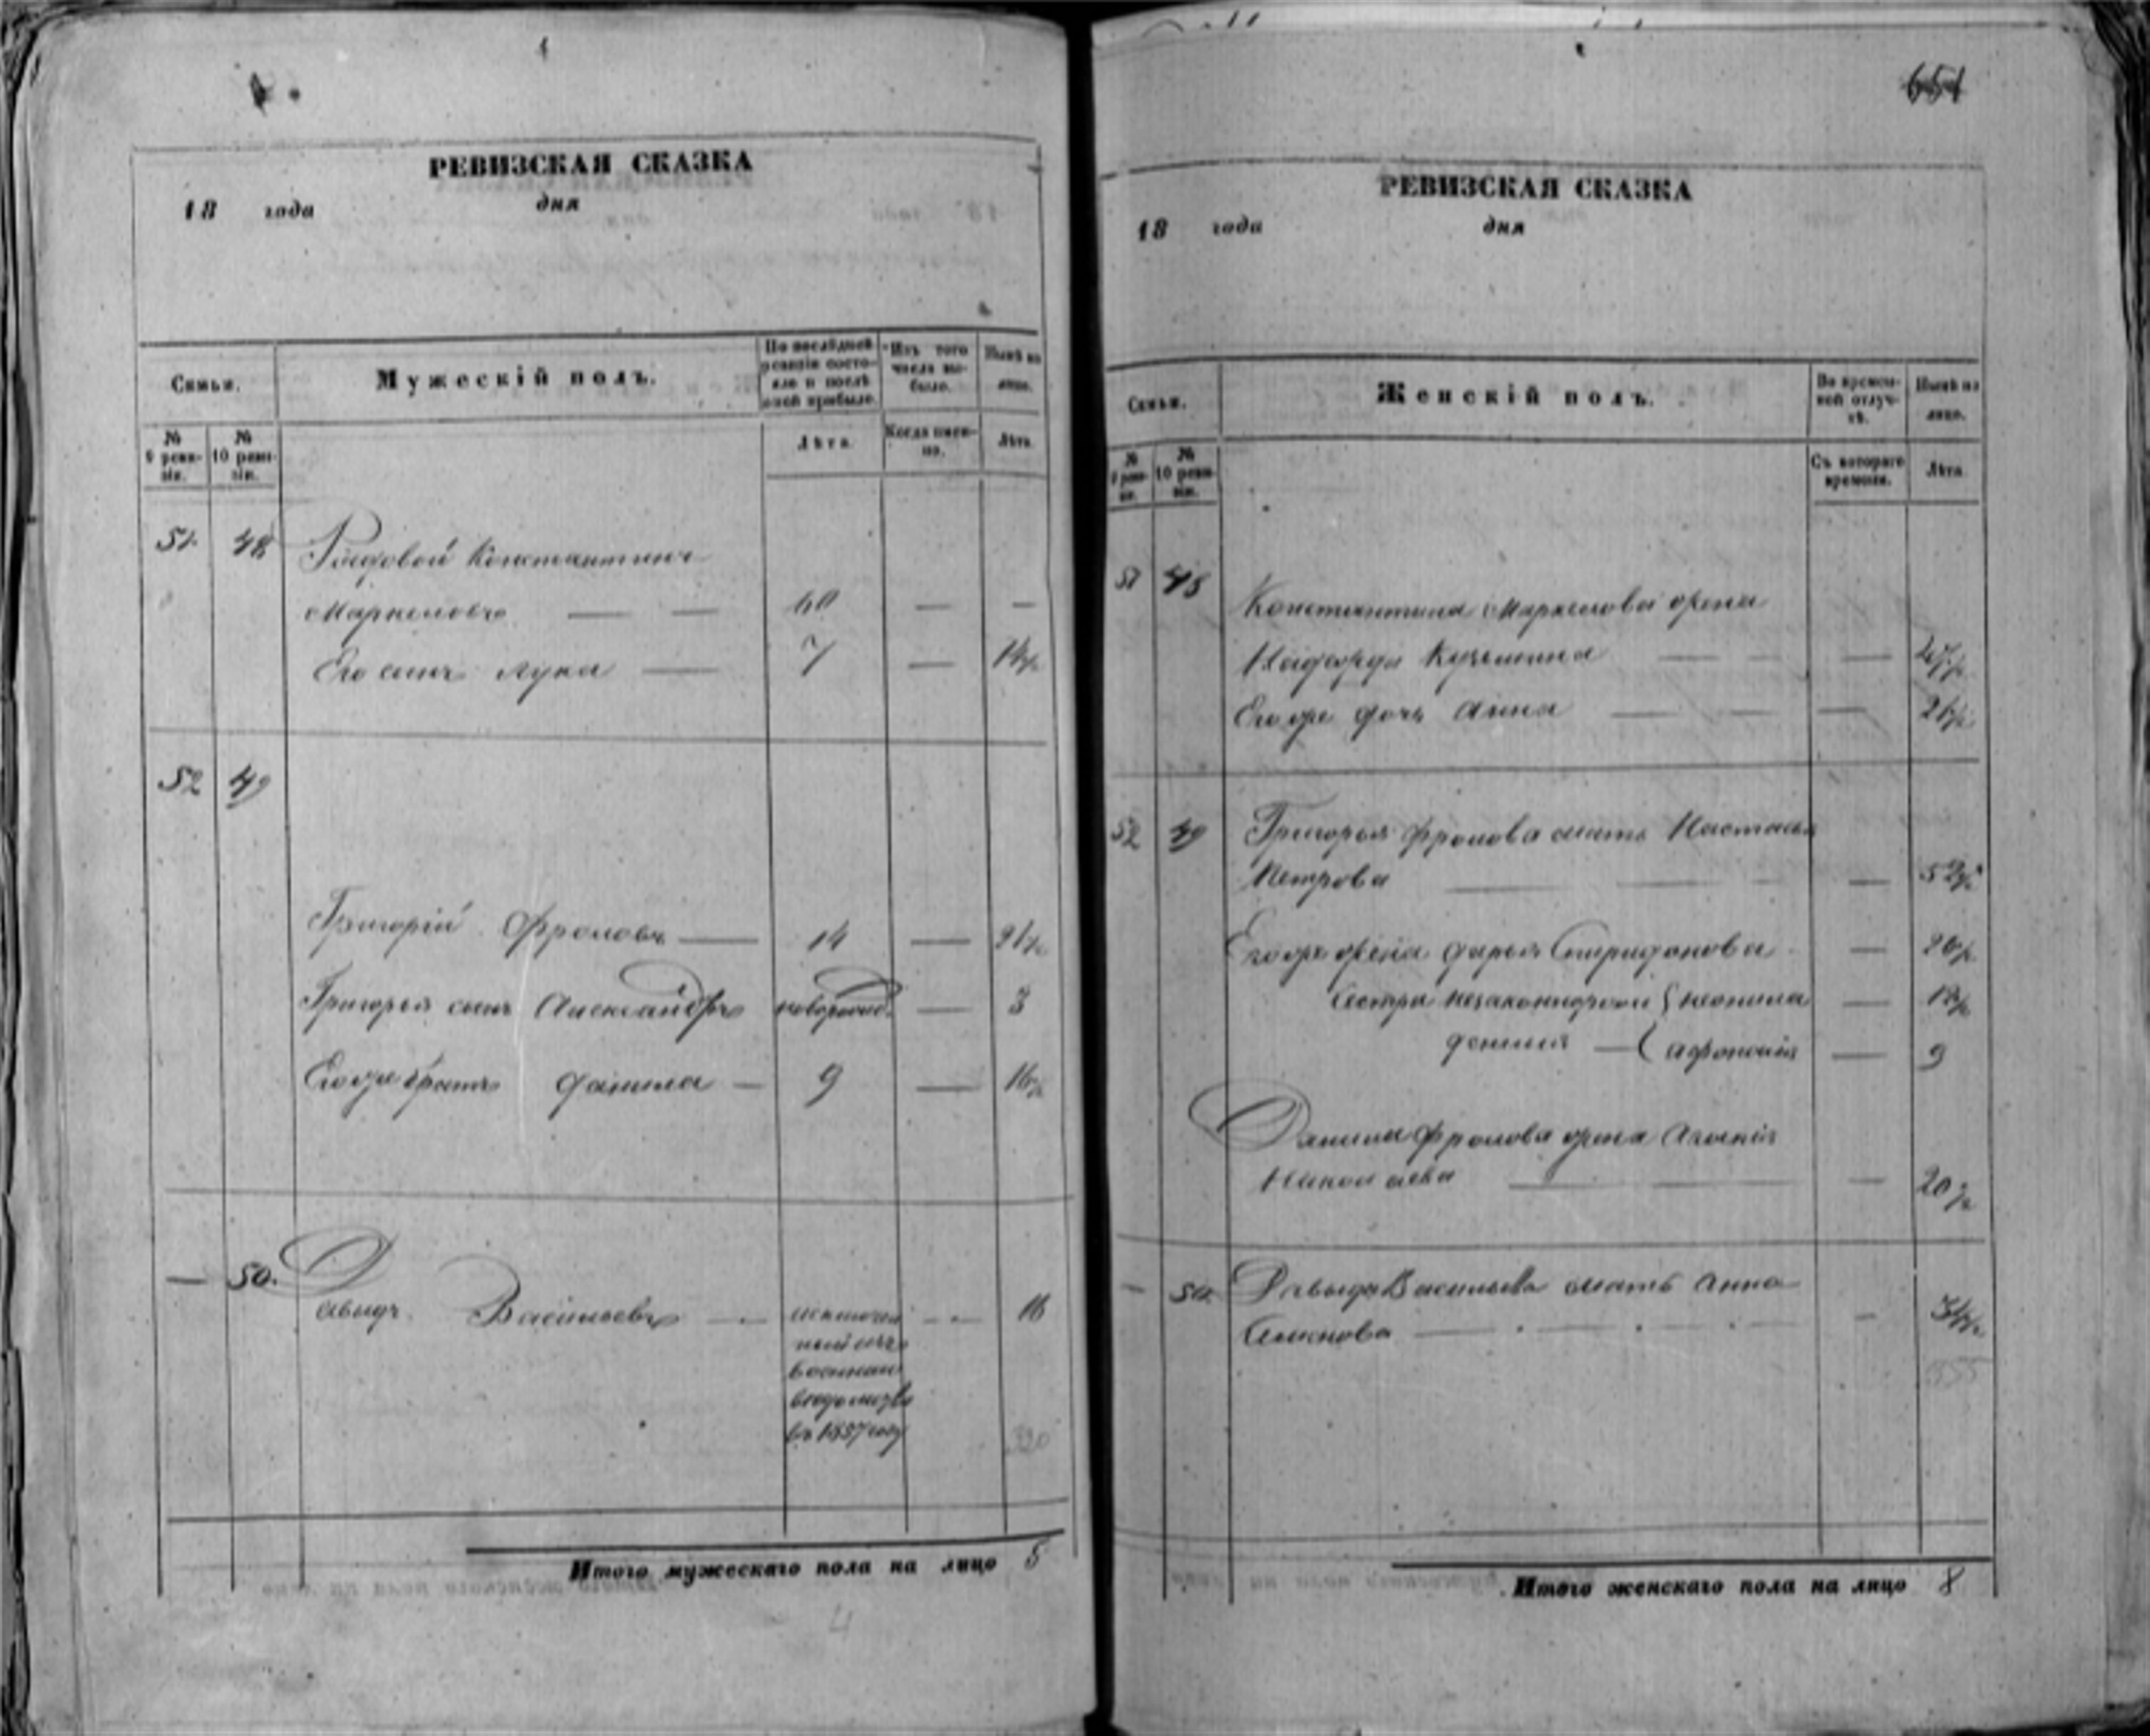 651
РЕВИЗСКАЯ СКАЗКА
18 года дня
Семьи.
Мужескій полъ.
По послѣдней ревизіи состояло и послѣ оной прибыло.
Изъ того числа выбыло.
Нынѣ на лицо.
№ 9 ревизіи.
№ 10 ревизіи.
Лѣта
Когда именно.
Лѣта
51 48 Рядовой Константинъ
Маркеловъ — — 60 — —
Его сынъ Лука — 7 — 14½
52 49
Григорій Фроловъ — 14 — 21½
Григорья сынъ Александръ новорожд. — 3
Его же братъ Данила — 9 — 16½
— 50. Давыдъ Васильевъ — 16
ный изъ
военнаго
ведомства
въ 1857 году
320
Итого мужескаго пола на лицо 5
4
РЕВИЗСКАЯ СКАЗКА
18 года дня
Семьи.
Женскій полъ.
Во временной отлучкѣ.
Нынѣ на лицо.
№ 9 ревизіи.
№ 10 ревизіи.
Съ котораго времени.
Лѣта
51 48 Константина Маркелова жена
Надежда Кузьмина — — — 47½
Его же дочь Анна — — — 21½
52 49 Григорья Фролова мать Настасья
Петрова — — — — 52½
Его же жена Дарья Спиридонова — 20½
Сестры незаконнорож { Неонила — 12½
денныя — { Афросинія — 9
Данилы Фролова жена
Николаева — — — 20½
— 50. Давыда Васильева мать Анна
Семенова — — — — 34½
555
Итого женскаго пола на лицо 8